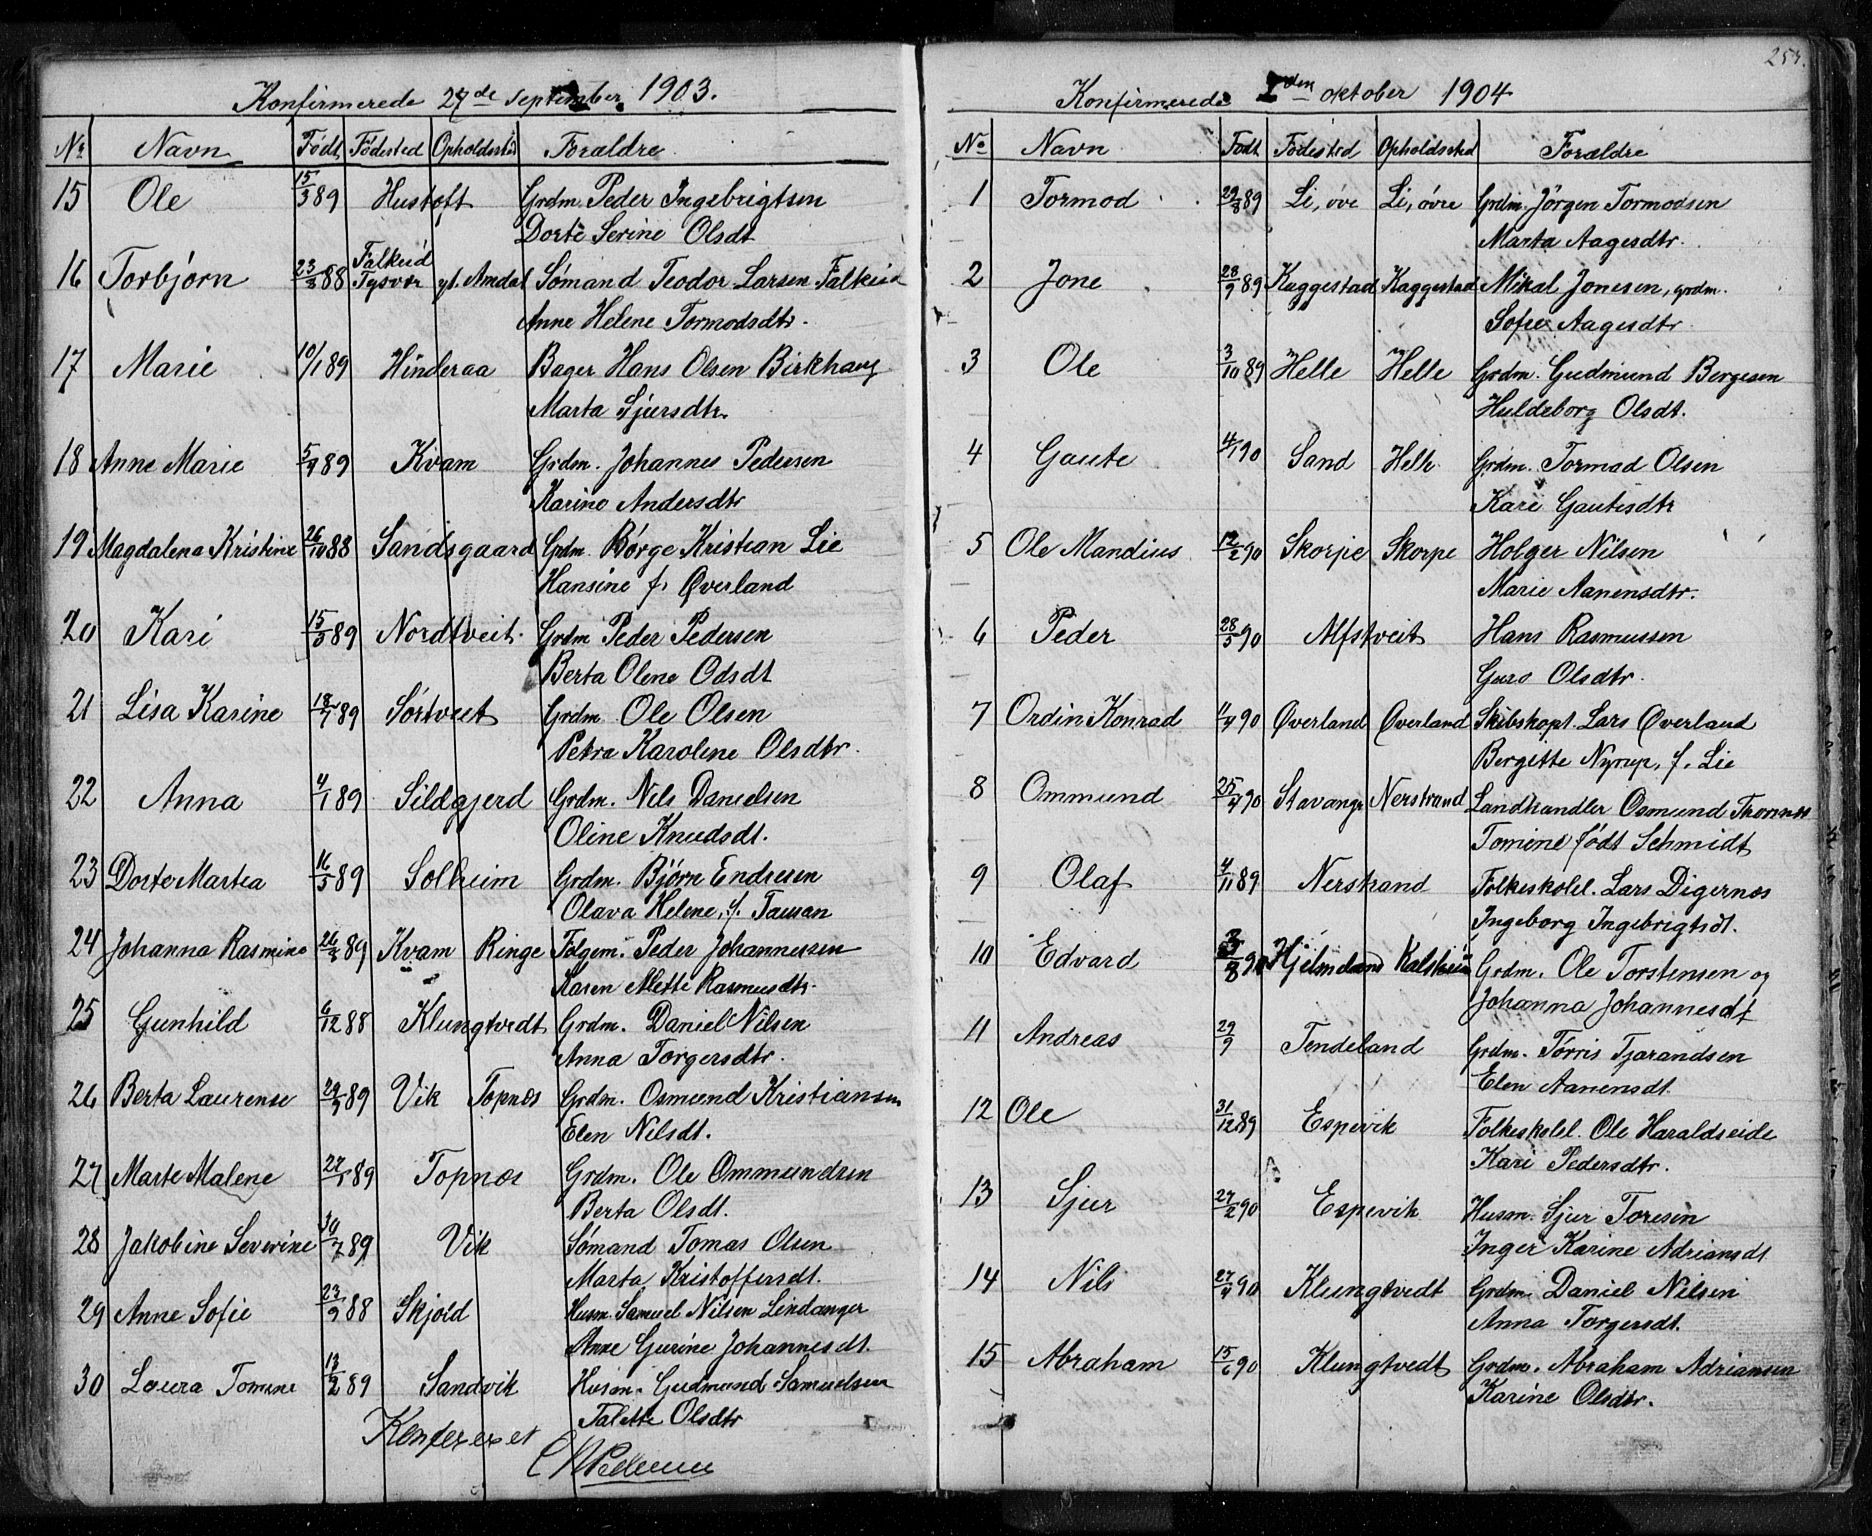 Konfirmerede 27de September 1903.
No Navn Födt Födested Opholdssted Forældre
15 Ole 15/3 89 Hustoft Grdm. Peder Ingebrigtsen
Dorte Serine Olsdt
16 Torbjörn 23/3 88 Falkeid Tysvær yt. Amdal Sömand Teodor Larsen Falkeid
Anne Helene Tormodsdtr.
17 Marie 10/1 89 Hinderaa Bager Hans Olsen Birkhaug
Marta Sjursdtr.
18 Anne Marie 5/4 89 Kvam Grdm. Johannes Pedersen
Karine Andersdtr
19 Magdalena Kristine 26/10 88 Sandsgaard Grdm. Börge Kristian Lie
Hansine f. Øverland
20 Kari 15/5 89 Nordtveit. Grdm Peder Pedersen
Berta Oline Odsdt
21 Lisa Karine 18/7 89 Sörtveit Grdm. Ole Olsen
Petra Karoline Olsdtr.
22 Anna 4/1 89 Sildgjerd Grdm. Nils Danielsen
Oline Knudsdt.
23 Dorte Martea 16/5 89 Solheim Grdm. Björn Endresen
Olava Helene, f. Tausan
24 Johanna Rasmine 26/3 89 Kvam Ringe Folgem. Peder Johannessen
Karen Mette Rasmusdtr.
25 Gunhild 6/12 88 Klungtvedt Grdm. Daniel Nilsen
Anna Torgersdtr.
26 Berta Laurense 29/3 89 Vik Topnes Grdm. Osmund Kristiansen
Elen Nilsdt.
27 Marte Malene 27/1 89 Topnæs Grdm. Ole Ommundsen
Berta Olsdt.
28 Jakobine Severine 30/7 89 Vik Sömand Tomas Olsen
Marta Kristoffersdt.
29 Anne Sofie 23/9 88 Skjold Husm. Samuel Nilsen Lindanger
Anne Gurine Johannesdt.
30 Laura Tomine 13/2 89 Sandvik Husm. Gudmund Samuelsen
Talette Olsdtr
Konfereret
253.
Konfirmerede den oktober 1904
No Navn Födt Födested Opholdssted Forældre
1 Tormod 29/8 89 Li, övre Li, övre Grdm. Jörgen Tormodsen
Marta Aagesdtr.
2 Jone 28/9 89 Kaggestad Kaggestad Mikal Jonesen, grdm.
Sofie Aagesdtr.
3 Ole 3/10 89 Helle Helle Grdm. Gudmund Bergesen
Huldeborg Olsdt.
4 Gaute 4/1 90 Sand Helle Grdm. Tormod Olsen
Kari Gautesdtr
5 Ole Mandius 12/2 90 Skorpe Skorpe Holger Nilsen
Marie Aanensdtr.
6 Peder 28/5 90 Alfstveit Hans Rasmussen
Guro Olsdtr.
7 Ordin Konrad 11/4 90 Øverland Øverland Skibskapt. Lars Øverland
Bergitte Nyrup, f. Lie
8 Ommund 25/4 90 Stavanger Nerstrand Landhandler Osmund Thornes
Tomine födt Schmidt
9 Olaf 4/11 89 Nerstrand Folkeskolel. Lars Digernæs
Ingeborg Ingebrigtsdt.
10 Edvard 3/8 90 Hjelmeland Kalsheim Grdm. Ole Torstensen og
Johanna Johannesdt
11 Andreas 29/9 Tendeland Grdm. Törris Tjarandsen
Elen Aanensdt.
12 Ole 31/12 89 Espevik Folkeskolel. Ole Haraldseide
Kari Pedersdtr.
13 Sjur 27/2 90 Espevik Husm. Sjur Toresen
Inger Karine Adriansdt
14 Nils 27/4 90 Klungtvedt Grdm. Daniel Nilsen
Anna Torgersdt.
15 Abraham 15/6 90 Klungtvedt Grdm. Abraham Adriansen
Karine Olsdtr.